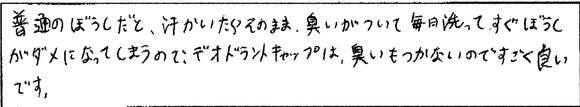 普通のぼうしだと、汗かいたらそのまま、臭いがついて毎日洗って、すぐぼうし
がダメになってしまうので、デオドラントキャップは、臭いもつかないのですごく良い
です。